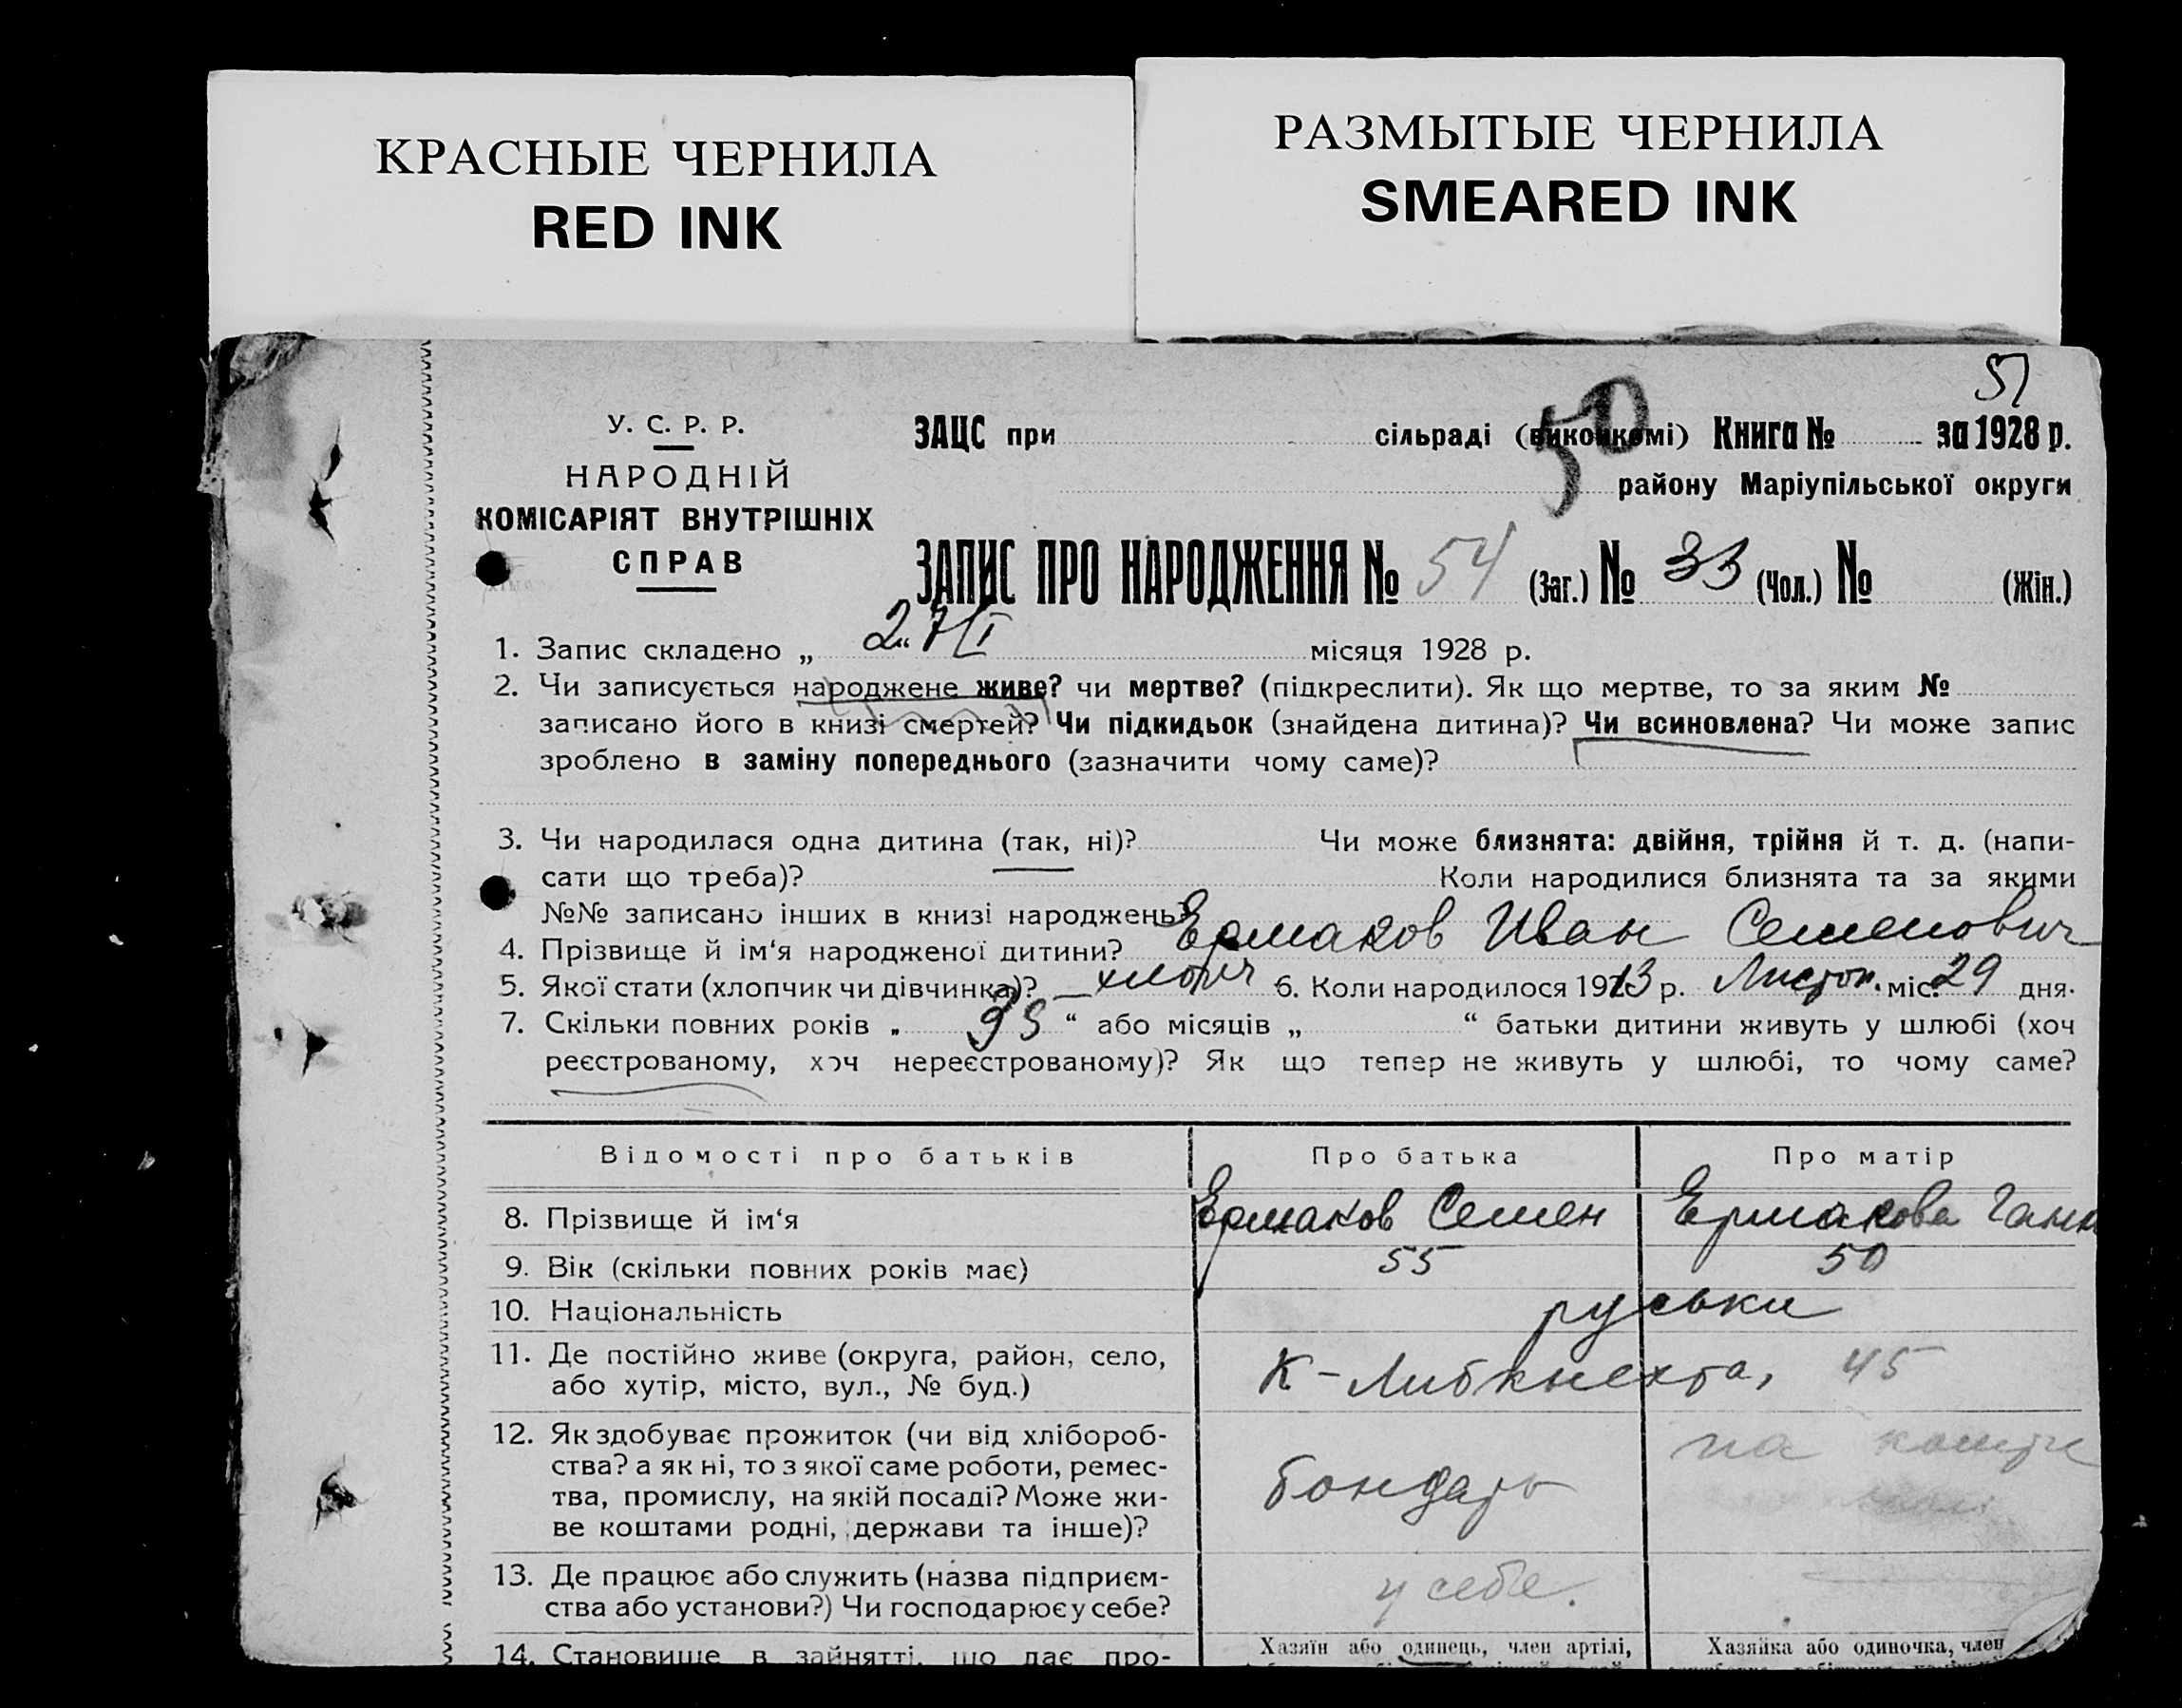 КРАСНЫЕ ЧЕРНИЛА
RED INK
РАЗМЫТЫЕ ЧЕРНИЛА
SMEARED INK
51
50
У. С. Р. Р.
НАРОДНІЙ
КОМІСАРІЯТ ВНУТРІШНІХ
СПРАВ
ЗАЦС при сільраді (виконкомі) Книга № за 1928 р.
району Маріупільської округи
ЗАПИС ПРО НАРОДЖЕННЯ № 54 (Заг.) № 33 (Чол.) № (Жін.)
1. Запис складено „ 27/I “ місяця 1928 р.
2. Чи записується народжене живе? чи мертве? (підкреслити). Як що мертве, то за яким №
записано його в книзі смертей? Чи підкидьок (знайдена дитина)? Чи всиновлена? Чи може запис
зроблено в заміну попереднього (зазначити чому саме)?
3. Чи народилася одна дитина (так, ні)? Чи може близнята: двійня, трійня й т. д. (напи-
сати що треба)? Коли народилися близнята та за якими
№№ записано інших в книзі народжень?
4. Прізвище й ім‘я народженої дитини? Ермаков Иван Семенович
5. Якої стати (хлопчик чи дівчинка)? хлопч 6. Коли народилося 1913 р. Листоп. міс. 29 дня.
7. Скільки повних років „ “ або місяців „ “ батьки дитини живуть у шлюбі (хоч
реєстрованому, хоч нереєстрованому)? Як що тепер не живуть у шлюбі, то чому саме?
Відомості про батьків Про батька Про матір
8. Прізвище й ім‘я Ермаков Семен Ермакова Ганн
9. Вік (скільки повних років має) 55 50
10. Національність руськи
11. Де постійно живе (округа, район, село,
або хутір, місто, вул., № буд.) К-Либкнехта, 45
12. Як здобуває прожиток (чи від хлібороб-
ства? а як ні, то з якої саме роботи, ремес-
тва, промислу, на якій посаді? Може жи-
ве коштами родні, держави та інше)?
бондарь на кошти
13. Де працює або служить (назва підприєм-
ства або установи?) Чи господарює у себе?
у себе.
14. Становище в зайнятті, що дає про-
Хазяїн або одинець, член артілі,
Хазяйка або одиночка, член